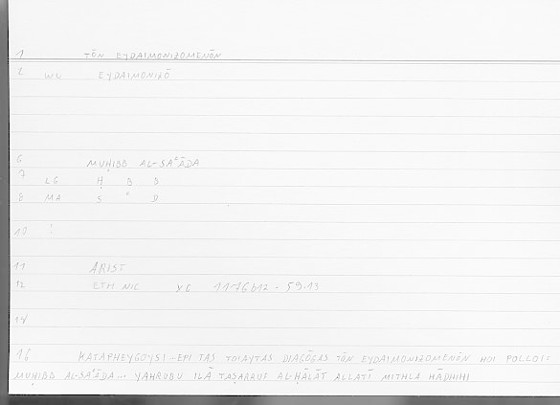 1 TŌN EYDAIMONIZOMENŌN
2 WU EYDAIMONIZŌ
6 MUḤIBB AL-SAʿĀDA
7 LG Ḥ B B
8 MA S ʿ D
10
11 ARIST
12 ETH. NIC 1176b12 - 59.13
14
16 KATAPHEYGOYSI - EPI TAS TOIAYTAS DIAGŌGAS TŌN EYDAIMONIZOMENŌN HOI POLLOI:
MUḤIBB AL-SAʿĀDA ... YAHRUBU ILĀ TAṢARRUF AL-ḤĀLĀT ALLATĪ MITHLA HĀDHIHI